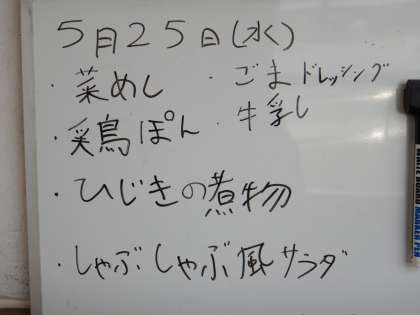 5月25日(水)
・菜めし
・ごまドレッシング
・鶏ぽん
・牛乳
・ひじきの煮物
・しゃぶしゃぶ風サラダ
WHITE BOARD MARKER PEN